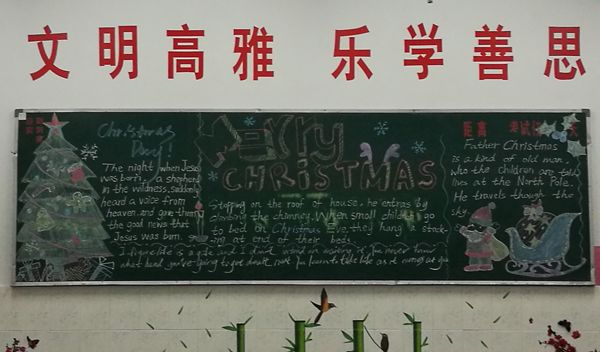 文明高雅 乐学善思
Christmas
Day!
The night when Jesus
was born, a shepherd
in the wildness, suddenly
heard a voice from
heaven and gave them
the goal news that
Jesus was burn.
Merry
CHRiSTMAS
Stopping on the root of house, he entras by
climbing the chimney. When small children go
to bed on Christmas Eve, they hang a stock-
ing at end of their beds.
I figure life is a gift and I don't intend on wasting it. You never know
what hand you're going to get dealt next. You learn to take life as it comes at you
距高 考试
Father Christmas
is a kind of old man,
who the children are told
lives at the North Pole.
He travels though the
sky